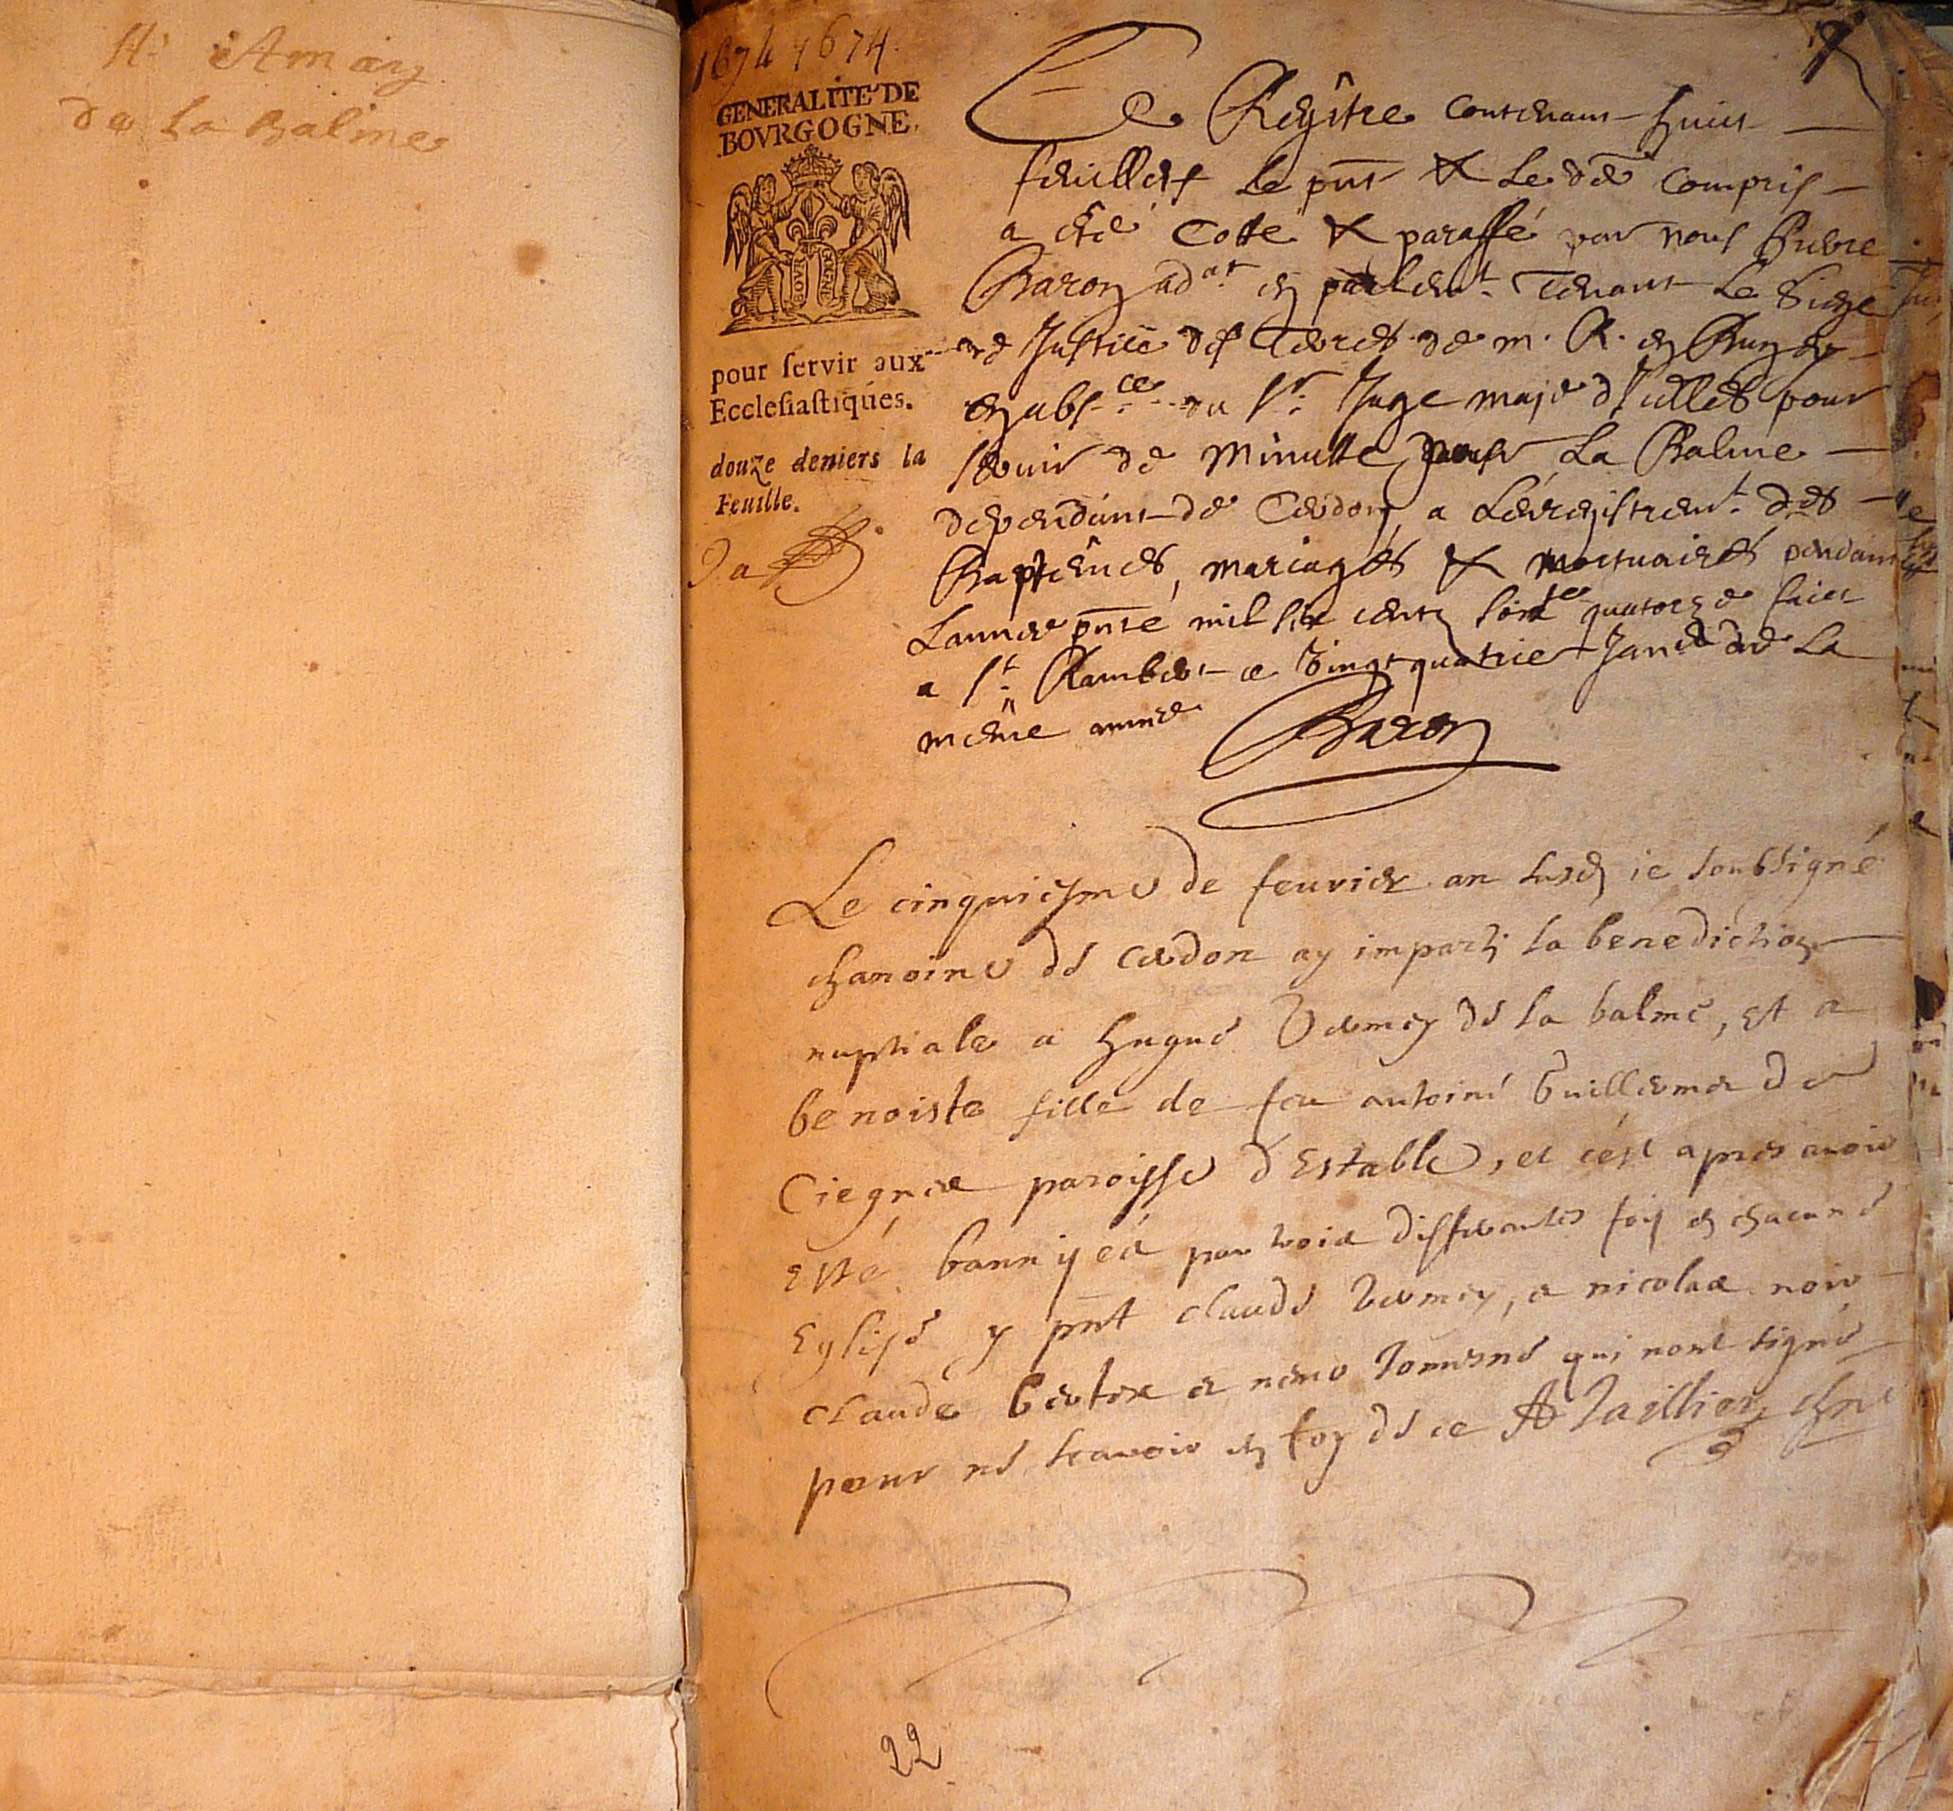 Amary
de la Balme
1674 1674
GENERALITE DE
BOVRGOGNE.
BOVR GOGNE
pour servir aux
Ecclesiastiques.
douze deniers la
Feuille.
Ce Registre contenant huict
feuillets le pnt & le der compris
a esté cotté & paraffé par nous Pierre
Baron adat en parlemt. tenant le siege
de Justice des Terres de m. R. en Bugey
en absce du sr. Juge maje d'icelles pour
servir de minutte pour La Balme
dependant de Cerdon, a L'enregistremt. des
Baptêmes, mariages & mortuaires pendant
L'annee pnte mil six cents soixte quatorze faict
a St. Rambert ce vingt quatrie Janer de La
même annee
Baron
Le cinquiesme de feurier an susd ie soubsigné
chanoine de Cerdon ay imparti la benediction
nuptiale a hugue Vermey de la balme, et a
benoiste fille de feu antoine Guillermet de
Ciegnee paroisse d'Estable, et c'est apres avoir
esté bannyée par trois differantes fois en chacune
Eglise y pnt claude Vermey, et nicolas noir
claude bertet et nemo qui n'ont signé
pour ne scavoir en foy de ce A Taillion chne
22